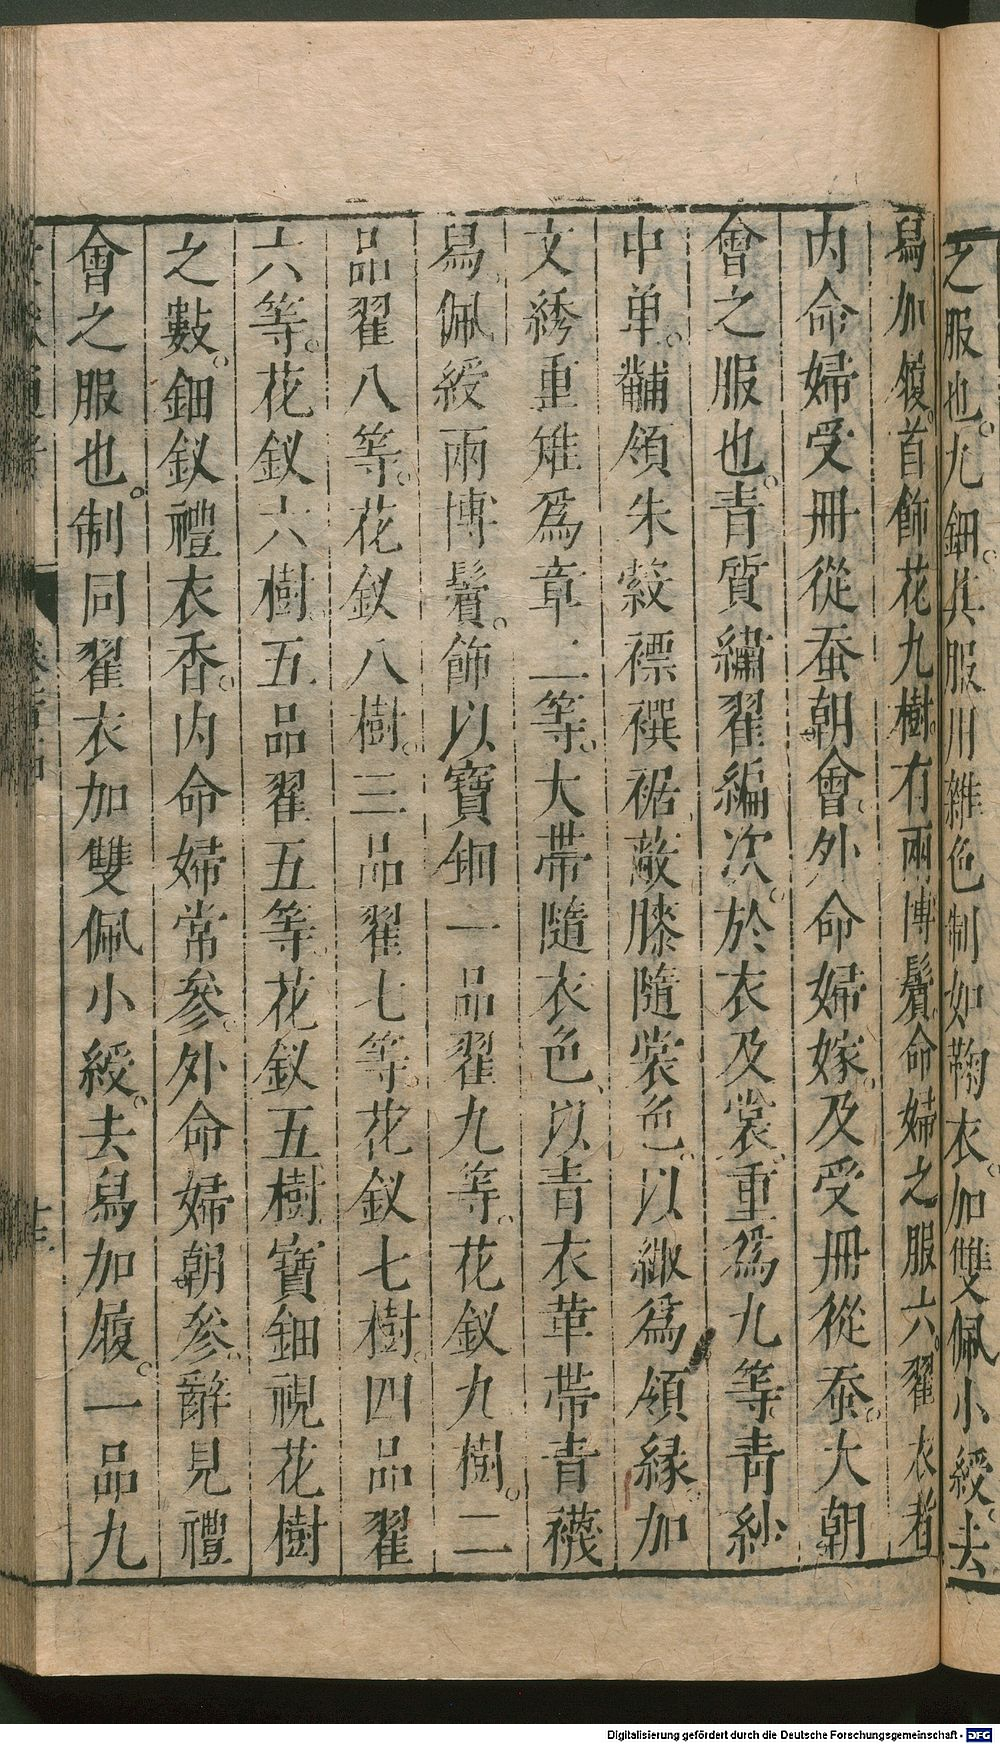 之服也。九鈿。其服用雜色制如鞠衣。加雙佩小綬。去
舄加履。首飾花九樹。有兩博鬢。命婦之服六。翟衣者
内命婦受冊從蚕朝會。外命婦嫁。及受冊從蚕。大朝
會之服也。青質繡翟編次。於衣及裳。重爲九等。青紗
中单。黼領朱縠褾襈裾。蔽膝隨裳色。以緅爲領緣。加
文綉重雉爲章二等。大帶隨衣色、以青衣革帶青襪
舄。佩綬兩博鬢。飾以寶鈿一品翟九等。花釵九樹。二
品翟八等。花釵八樹。三品翟七等。花釵七樹。四品翟
六等。花釵六樹。五品翟五等。花釵五樹寶鈿視花樹
之數。鈿釵禮衣者。内命婦常參。外命婦朝參。辭見禮
會之服也。制同翟衣加雙佩小綬。去舄加履。一品九
Digitalisierung gefördert durch die Deutsche Forschungsgemeinschaft - DFG